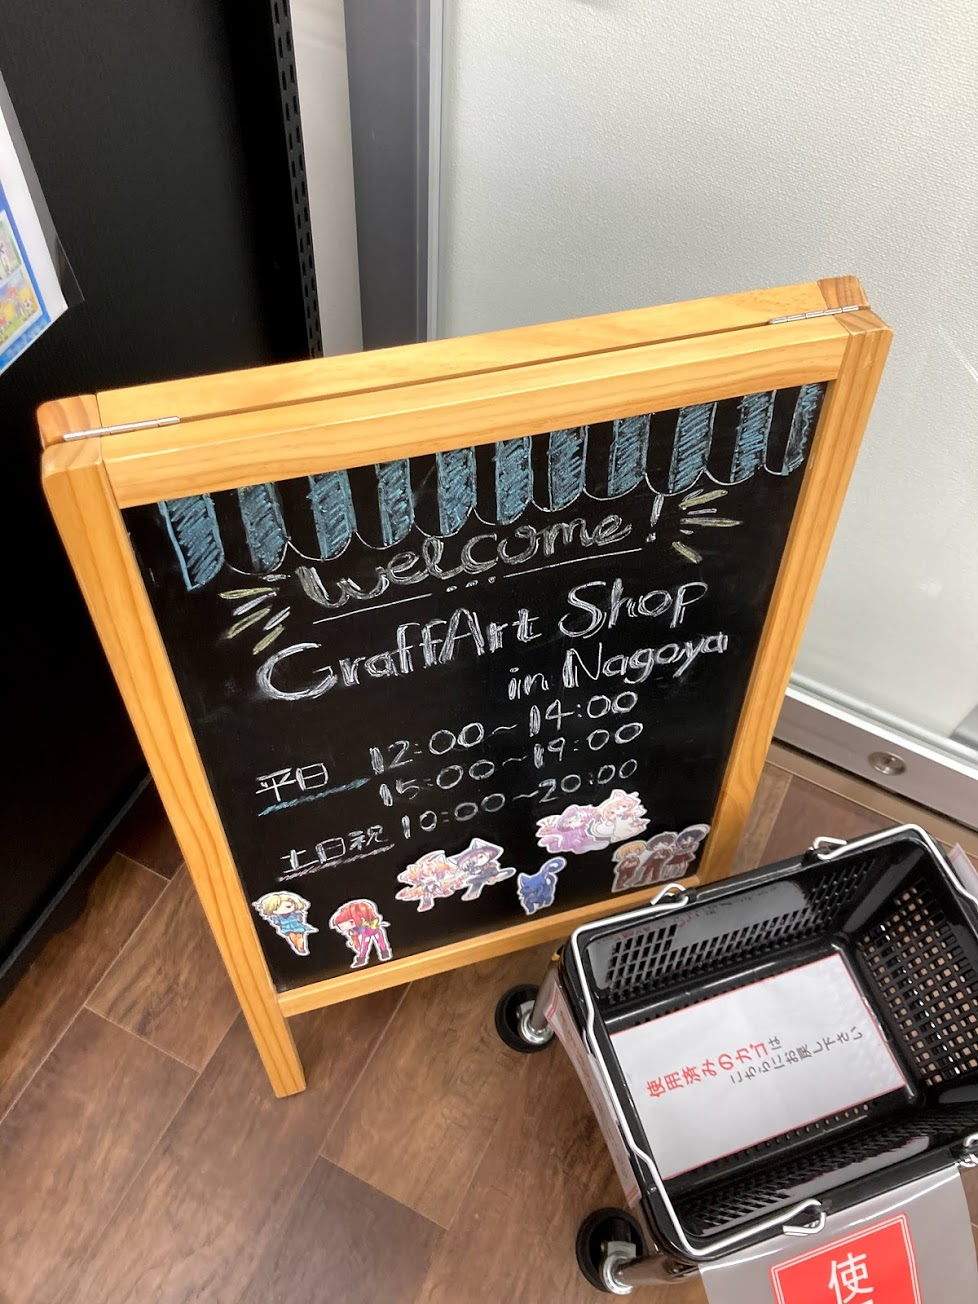 welcome!
GraffArt Shop
in Nagoya
平日 12:00~14:00
15:00~19:00
土日祝 10:00~20:00
使用済みのカゴは
こちらにお戻し下さい
使